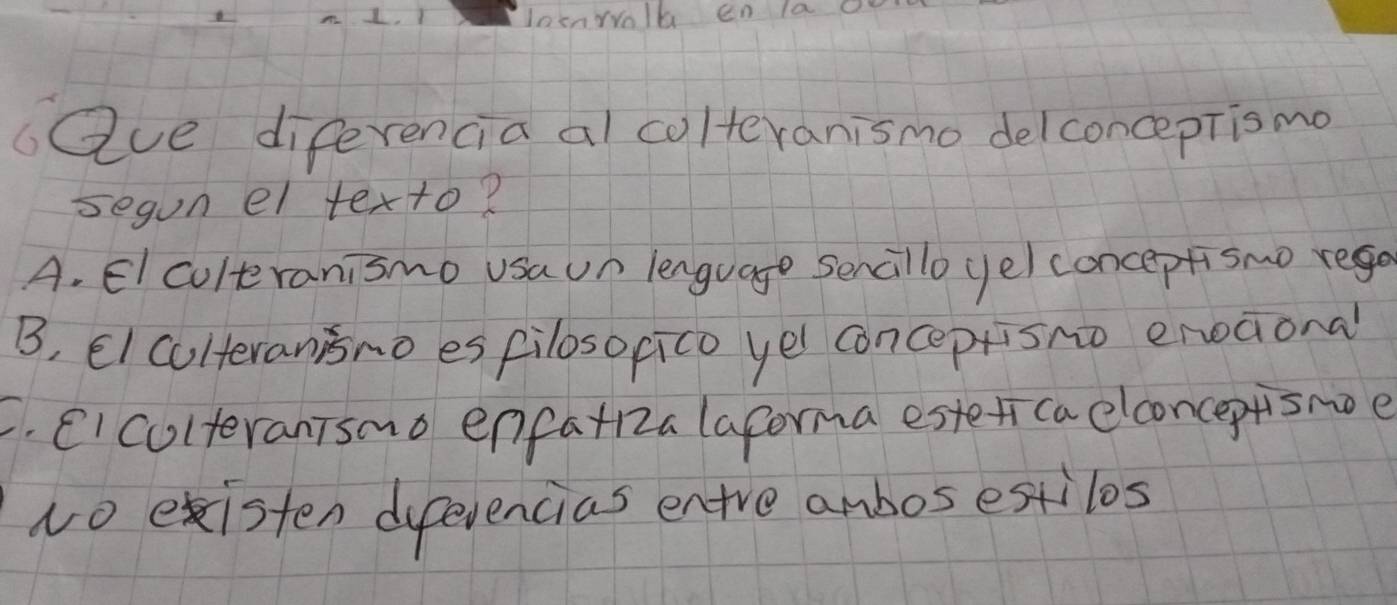 en la
6 Que diferencia al culteranismo del conceptismo
segun el texto?
A. El culteranismo usa un lenguage sencillo y el conceptismo rego
B. El culteranismo es filosofico y el conceptismo emocional
C. El culteranismo enfatiza la forma estetica el conceptismo e
No existen diferencias entre ambos estilos